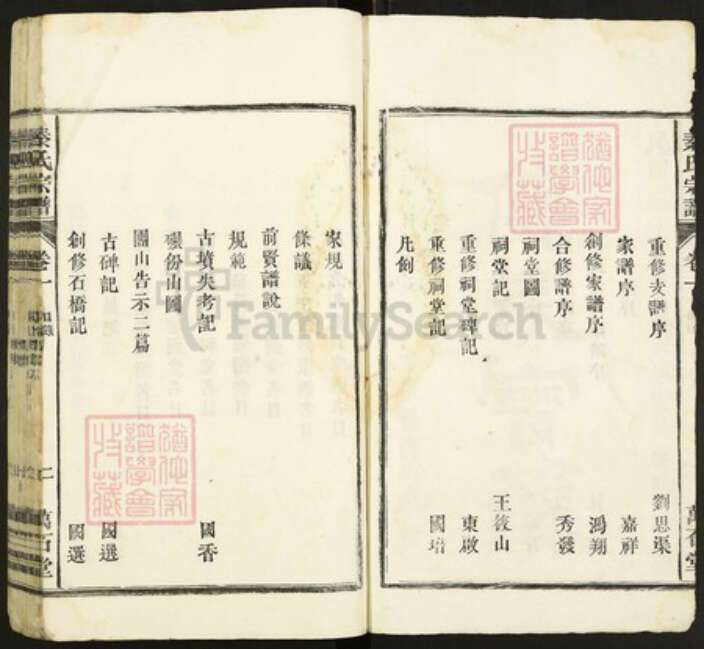 重修支譜序 劉思渠
家譜序 嘉祥
創修家譜序 鴻翔
合修譜序 秀發
祠堂圖
祠堂記 王後山
重修祠堂碑記 東啟
重修祠堂記 國培
凡例
家規
條議
前賢譜說
規範
古墳失考記 國香
礫份山圖
團山告示二篇
古碑記 國選
創修石橋記 國選
秦氏宗譜
卷一
二
萬石堂
FamilySearch